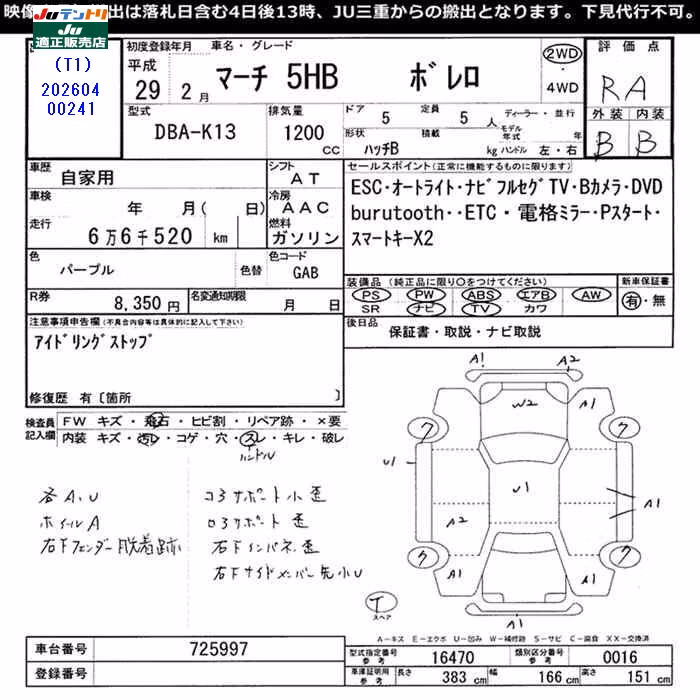 映像 出は落札日含む4日後13時、JU三重からの搬出となります。下見代行不可。
JUテントリ
JU 適正販売店
(T1)
202604
00241
初度登録年月
平成
29 2月
車名・グレード
マーチ 5HB ボレロ
2WD
・
4WD
評価点
RA
外装 内装
B B
型式
DBA-K13
排気量
1200 cc
ドア 5
定員 5人
ディーラー・並行
モデル年式 年
形状 ハッチB
積載 kg
ハンドル 左・右
車歴
自家用
シフト
AT
車検
年 月( 日)
冷房
AAC
走行
6万6千520 km
燃料
ガソリン
色
パープル
色替
色コード
GAB
R券
8,350円
名変通知期限
月 日
セールスポイント(正常に機能するものに限ります)
ESC・オートライト・ナビフルセグTV・Bカメラ・DVD
burutooth・・ETC・電格ミラー・Pスタート・
スマートキーX2
装備品 (純正品に限り○をつけてください)
PS PW ABS エアB AW
SR ナビ TV カワ
新車保証書
有・無
後日品
保証書・取説・ナビ取説
注意事項申告欄(不具合内容等は具体的に記入して下さい)
アイドリングストップ
修復歴 有〔箇所 〕
検査員記入欄
FW キズ・飛石・ヒビ割・リペア跡・×要
内装 キズ・汚レ・コゲ・穴・スレ・キレ・破レ
ハンドル
各A、U
ホイールA
右Fフェンダー脱着跡
コアサポート小歪
ロアサポート歪
右Fインパネ歪
右Fサイドメンバー先小U
A1
A2
W2
A1
ク
ク
U1
U1
A1
A2
ク
ク
A1
A1
T
スペア
A1
A-キズ E-エクボ U-凹み W-補修跡 S-サビ C-腐食 XX-交換済
車台番号
725997
登録番号
型式指定番号 参考
16470
類別区分番号 参考
0016
車庫証明用 参考
長さ 383 cm
幅 166 cm
高さ 151 cm